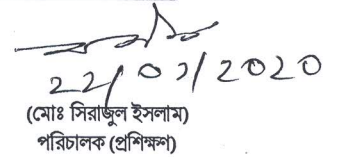 22/07/2020
(মোঃ সিরাজুল ইসলাম)
পরিচালক (প্রশিক্ষণ)